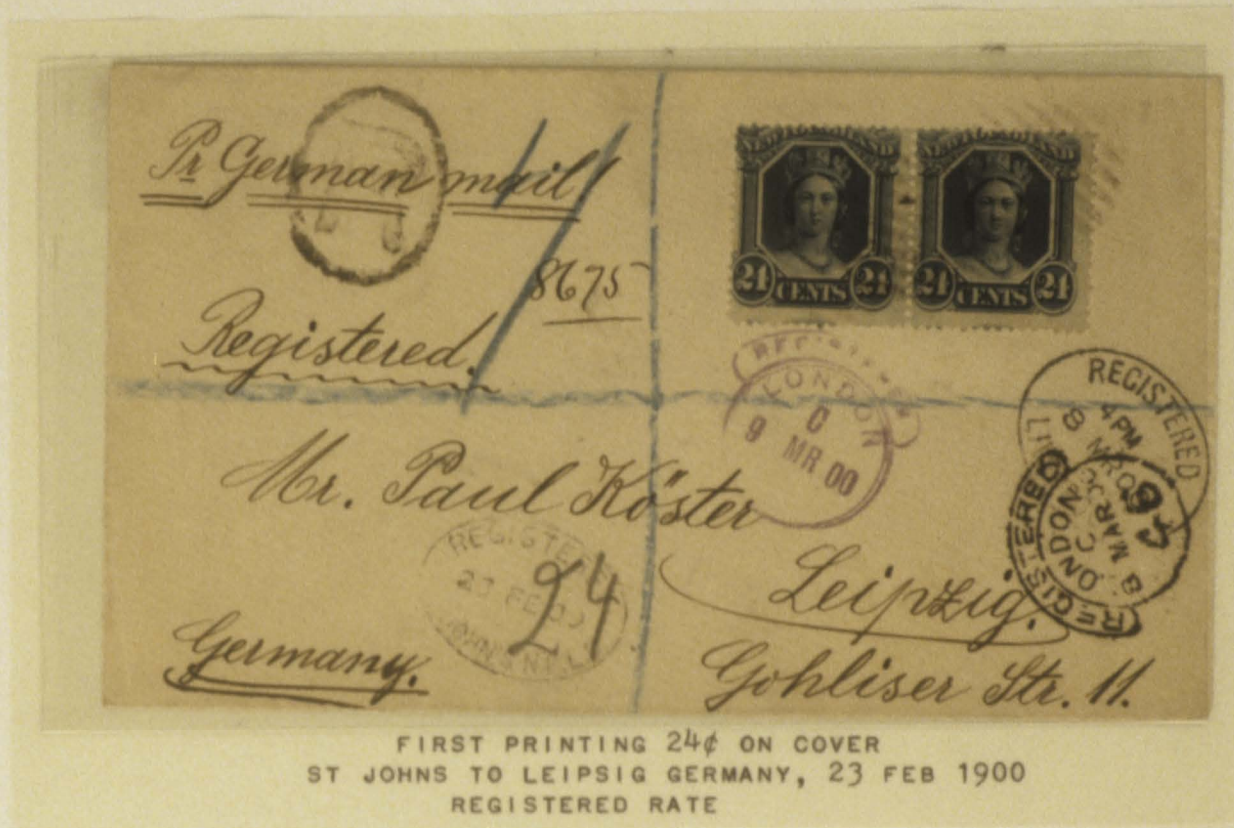 Pr German mail
8675
Registered.
NEWFOUNDLAND
24 CENTS 24
NEWFOUNDLAND
24 CENTS 24
REGISTERED
LONDON
C
9 MR 00
REGISTERED
4 PM
8 MR 00
REGISTERED
LONDON
C
8 MAR 00
Mr. Paul Köster
Leipzig.
REGISTERED
23 FE 00
24
Germany.
Gohliser Str. 11.
FIRST PRINTING 24¢ ON COVER
ST JOHNS TO LEIPSIG GERMANY, 23 FEB 1900
REGISTERED RATE